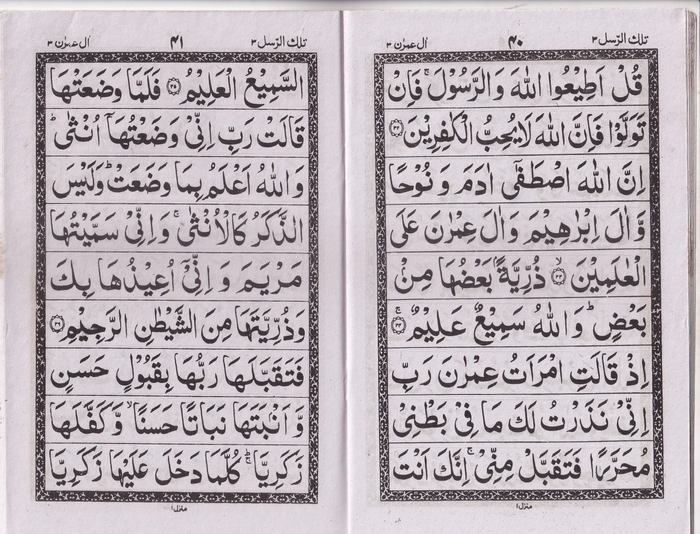 تلك الرسل ٣
٤٠
اٰل عمرٰن ٣
قُلْ اَطِيْعُوا اللّٰهَ وَالرَّسُوْلَ ۚ فَاِنْ
تَوَلَّوْا فَاِنَّ اللّٰهَ لَا يُحِبُّ الْكٰفِرِيْنَ ﴿٣٢﴾
اِنَّ اللّٰهَ اصْطَفٰٓى اٰدَمَ وَ نُوْحًا
وَّاٰلَ اِبْرٰهِيْمَ وَاٰلَ عِمْرٰنَ عَلَى
الْعٰلَمِيْنَ ﴿٣٣﴾ ۙ ذُرِّيَّةًۢ بَعْضُهَا مِنْۢ
بَعْضٍ ؕ وَاللّٰهُ سَمِيْعٌ عَلِيْمٌ ﴿٣٤﴾ ۚ
اِذْ قَالَتِ امْرَاَتُ عِمْرٰنَ رَبِّ
اِنِّيْ نَذَرْتُ لَكَ مَا فِيْ بَطْنِيْ
مُحَرَّرًا فَتَقَبَّلْ مِنِّيْ ۚ اِنَّكَ اَنْتَ
منزل ١
تلك الرسل ٣
٤١
اٰل عمرٰن ٣
السَّمِيْعُ الْعَلِيْمُ ﴿٣٥﴾ فَلَمَّا وَضَعَتْهَا
قَالَتْ رَبِّ اِنِّيْ وَضَعْتُهَاۤ اُنْثٰى ؕ
وَاللّٰهُ اَعْلَمُ بِمَا وَضَعَتْ ؕ وَلَيْسَ
الذَّكَرُ كَالْاُنْثٰى ۚ وَاِنِّيْ سَمَّيْتُهَا
مَرْيَمَ وَ اِنِّيْۤ اُعِيْذُهَا بِكَ
وَذُرِّيَّتَهَا مِنَ الشَّيْطٰنِ الرَّجِيْمِ ﴿٣٦﴾
فَتَقَبَّلَهَا رَبُّهَا بِقَبُوْلٍ حَسَنٍ
وَّ اَنْۢبَتَهَا نَبَاتًا حَسَنًا ۙ وَّكَفَّلَهَا
زَكَرِيَّا ؕ كُلَّمَا دَخَلَ عَلَيْهَا زَكَرِيَّا
منزل ١